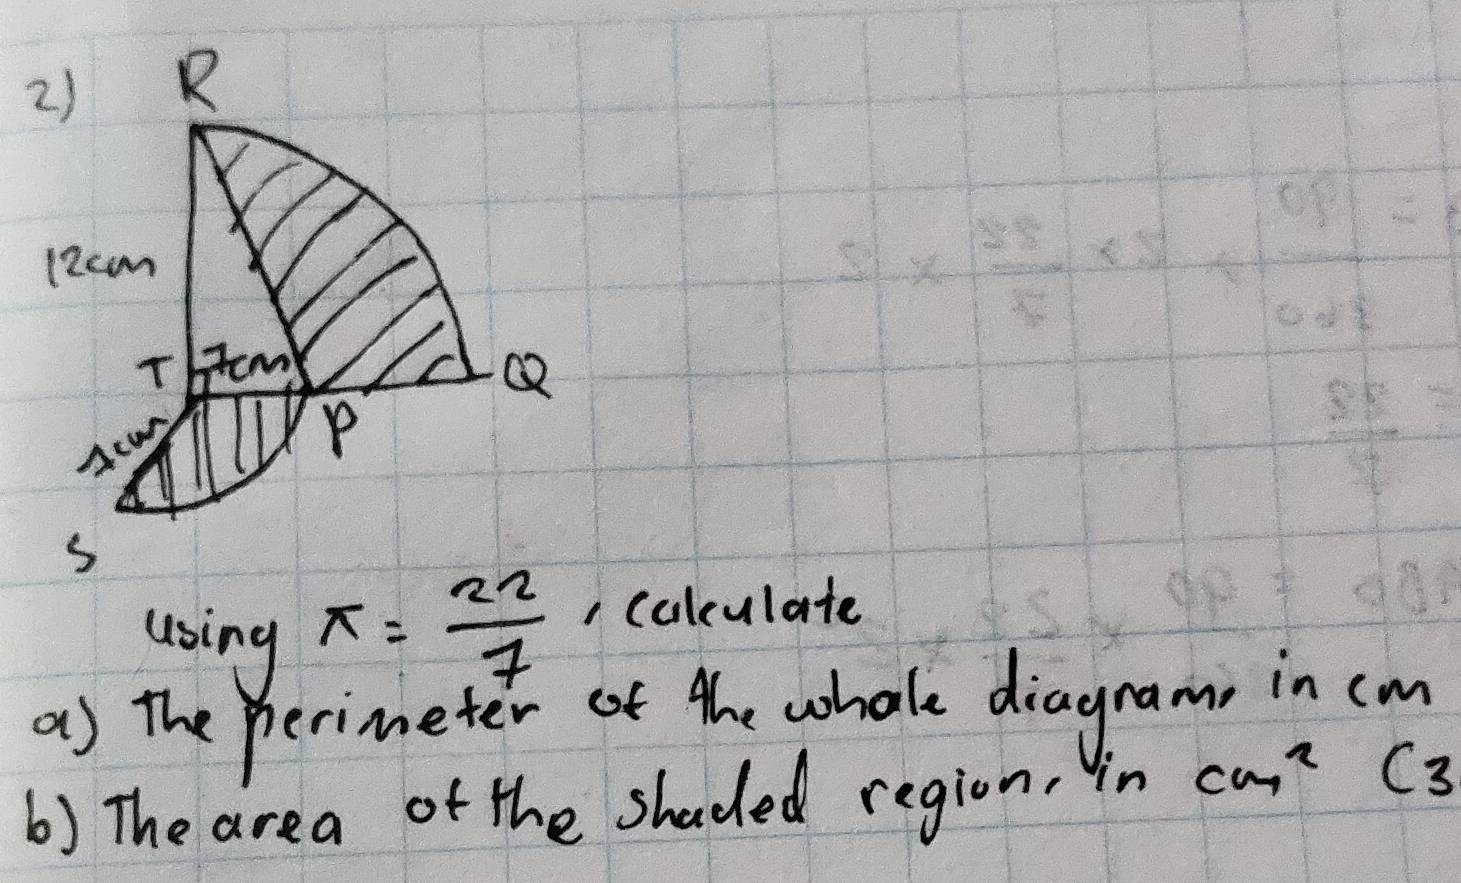 2)
R
12cm
T 7cm Q
7cm P
S
using π = 22/7, calculate
a) The perimeter of the whole diagram, in cm
b) The area of the shaded region, in cm² (3